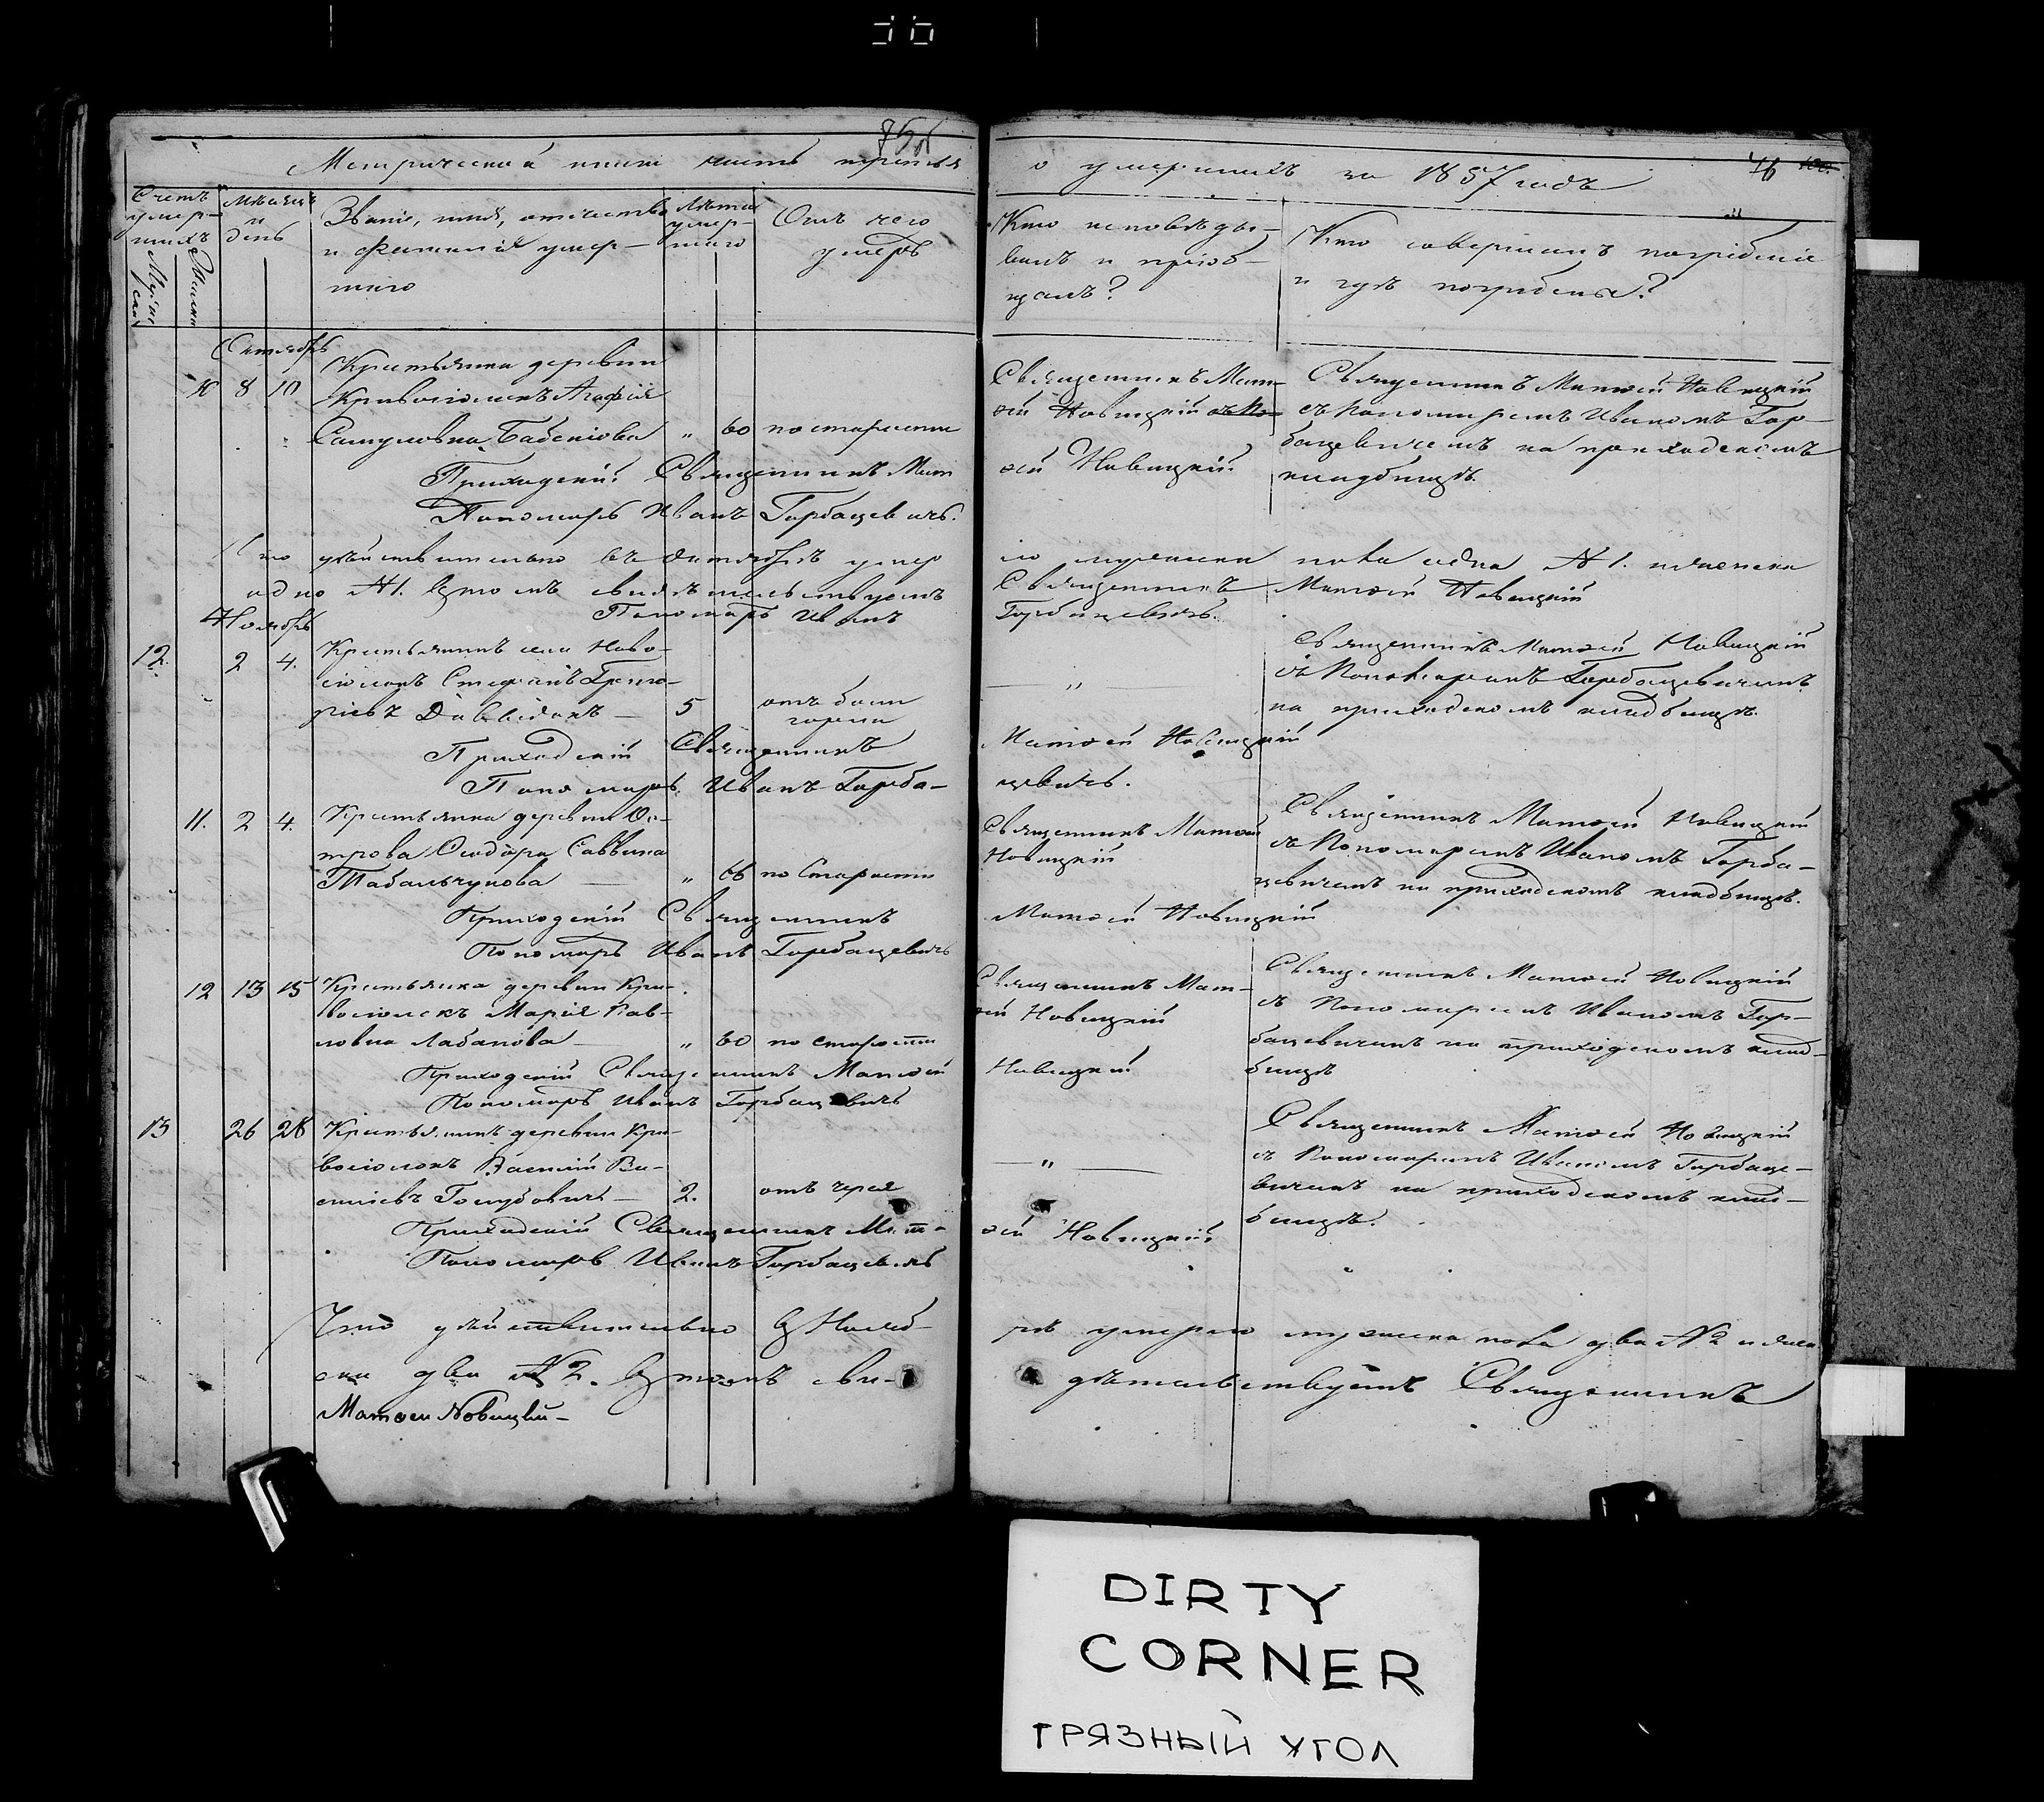 75б
Метрической книги часть третья
о умершихъ за 1857 годъ
76
Счетъ умер-
шихъ
Мужес
каго
Женскаго
Мѣсяцъ
и
день
Званіе, имя, отчество
и фамилія умер-
шаго
Лѣта
умер-
шаго
Отъ чего
умеръ
Кто исповѣды-
валъ и пріоб-
щалъ?
Кто совершалъ погребеніе
и гдѣ погребены?
Октябрь
Крестьянка деревни
8 10. Кривосіолокъ Агафія
Самуиловна Бабенкова " 60 по старости
Священникъ Мат-
ѳей Новицкій
Священникъ Матѳей Новицкій
съ Пономаремъ Иваномъ Гор-
бацевичемъ на приходскомъ
кладбищѣ.
Приходскій Священникъ Мат
ѳей Новицкій
Пономарь Иванъ Горбацевичъ.
Что дѣйствительно въ Октябрѣ умер
ло мужеска пола одна № 1. и женска
одно № 1. въ томъ свидѣтельствуемъ
Священникъ Матѳей Новицкій
Пономарь Иванъ
Горбацевичъ.
Ноябрь
12. 2 4. Крестьянинъ села Ново-
сіолокъ Стефанъ Григо-
рьевъ 5 отъ боли
горла
"
Священникъ Матѳей Новицкій
съ Пономаремъ Горбацевичемъ
на приходскомъ кладбищѣ.
Приходскій Священникъ
Матѳей Новицкій
Пономарь Иванъ Горба-
цевичъ.
11. 2 4. Крестьянка деревни Ос-
трова Ѳеодора Саввина
Табальчукова " 66 по Старости
Священникъ Матѳей
Новицкій
Священникъ Матѳей Новицкій
съ Пономаремъ Иваномъ Горба-
цевичемъ на приходскомъ кладбищѣ.
Приходскій Священникъ
Матѳей Новицкій
Пономарь Иванъ Горбацевичъ
12 13 15 Крестьянка деревни Кри-
восіолокъ Марія Пав-
ловна Лабанова " 60 по старости
Священникъ Мат-
ѳей Новицкій
Священникъ Матѳей Новицкій
съ Пономаремъ Иваномъ Гор-
бацевичемъ на приходскомъ клад-
бищѣ
Приходскій Священникъ Матѳей
Новицкій
Пономарь Иванъ Горбацевичъ
13 26 28 Крестьянинъ деревни Кри-
восіолокъ Василій Ва-
силіевъ Голубовичъ 2. отъ
"
Священникъ Матѳей Новицкій
съ Пономаремъ Иваномъ Горбаце-
вичемъ на приходскомъ клад-
бищѣ.
Приходскій Священникъ Мат-
ѳей Новицкій
Пономарь Иванъ Горбацевичъ
Что дѣйствительно въ Нояб-
рѣ умерло мужеска пола два № 2 и жен
ска два № 2. въ томъ сви-
дѣтельствуетъ Священникъ
Матѳей Новицкій
DIRTY
CORNER
ГРЯЗНЫЙ УГОЛ